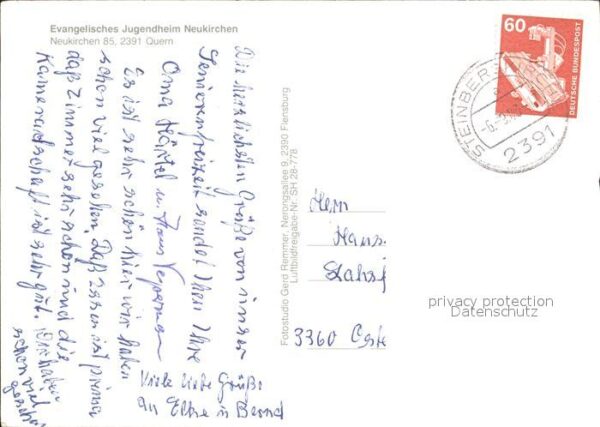 Evangelisches Jugendheim Neukirchen
Neukirchen 85, 2391 Quern
Die herzlichsten Grüße von unser
Seniorenfreizeit sendet Ihnen Ihre
Oma Härtel u.
Es ist sehr schön hier wir haben
schon viel gesehen. Daß Essen ist prima
daß Zimmer sehr schön und die
Kameradschaft ist sehr gut. Wir haben
schon viel
gesehen
Viele liebe Grüße
an Elke u Bernd
Fotostudio Gerd Remmer, Nerongsallee 9, 2390 Flensburg
Luftbildfreigabe-Nr. SH 28-778
60
DEUTSCHE BUNDESPOST
STEINBERGKIRCHE
2391
Herrn
Hans
3360 Oste
privacy protection
Datenschutz